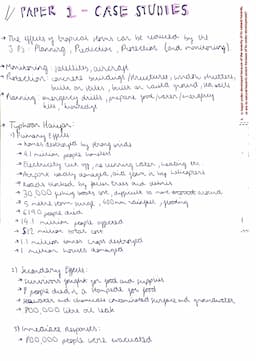 PAPER 1 - CASE STUDIES
→ The effects of tropical storms can be reduced by the
3 Ps: Planning, Prediction, Protection (and monitoring).
→ Monitoring: satellites, aircraft
→ Protection: concrete buildings/structures, window shutters,
built on stilts, built on raised ground, sea walls
→ Planning: emergency drills, prepare food, water, emergency
kits, knowledge
→ Typhoon Haiyan:
1) Primary Effects:
→ homes destroyed by strong winds
→ 4.1 million people homeless
→ Electricity cut off, no running water, heating etc.
→ Airport badly damaged,
→ Roads blocked by fallen trees and debris
→ 30,000 fishing boats lost,
→ 5 metre storm surge, 400mm rainfall, flooding
→ 6190 people died
→ 14.1 million people affected
→ $12 million total cost
→ 1.1 million tonnes crops destroyed
→ 1 million houses damaged
2) Secondary Effects:
→ Survivors fought for food and supplies
→ 8 people died in a stampede for food
→ Seawater and chemicals contaminated surface and groundwater
→ 800,000 litre oil leak
3) Immediate Responses:
→ 800,000 people were evacuated